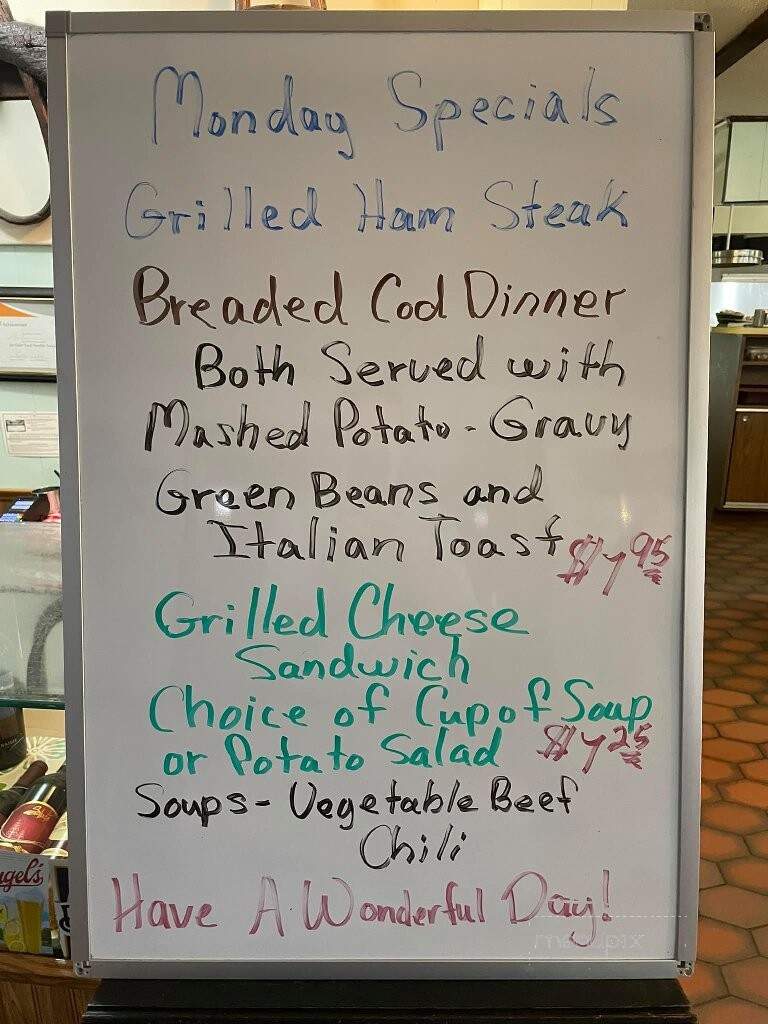 Monday Specials
Grilled Ham Steak
Breaded Cod Dinner
Both Served with
Mashed Potato - Gravy
Green Beans and
Italian Toast $14.95
Grilled Cheese
Sandwich
Choice of Cup of Soup
or Potato Salad $14.25
Soups - Vegetable Beef
Chili
Have A Wonderful Day!